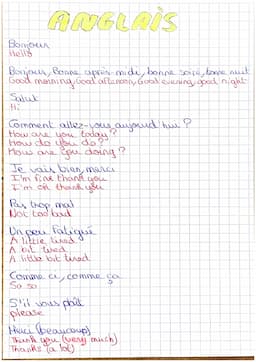 ANGLAIS
Bonjour
Hello
Bonjour, Bonne après-midi, bonne soirée, bonne nuit
Good morning, Good afternoon, Good evening, good night
Salut
Hi
Comment allez-vous aujourd'hui ?
How are you today ?
How do you do ?
How are you doing ?
Je vais bien, merci
I'm fine thank you
I'm ok thank you
Pas trop mal
Not too bad
Un peu fatigué
A little tired
A bit tired
A little bit tired
Comme ci, comme ça
So so
S'il vous plaît
please
Merci (beaucoup)
Thank you (very much)
Thanks (a lot)